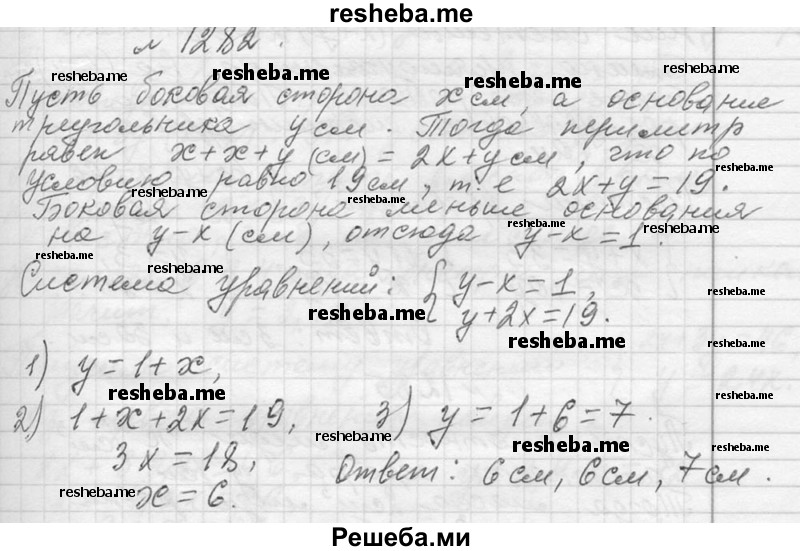 resheba.me
№ 1282.
resheba.me resheba.me resheba.me
Пусть боковая сторона x см, а основание
треугольника y см. Тогда периметр
равен x+x+y (см) = 2x+y см, что по
resheba.me
условию равно 19 см, т. е 2x+y=19.
resheba.me resheba.me resheba.me
Боковая сторона меньше основания
на y-x (см), отсюда y-x=1.
resheba.me resheba.me
resheba.me resheba.me
Система уравнений: { y-x=1,
y+2x=19.
resheba.me resheba.me
1) y=1+x,
resheba.me
2) 1+x+2x=19, 3) y=1+6=7.
resheba.me resheba.me
3x=18, Ответ: 6 см, 6 см, 7 см.
resheba.me
x=6.
Решеба.ми